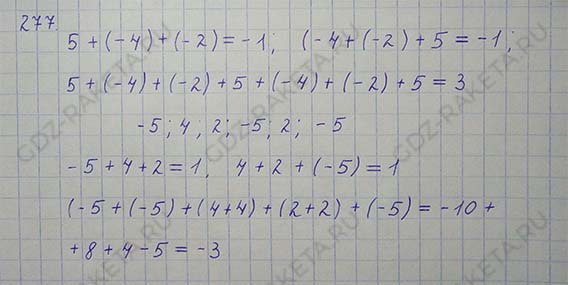 277.
5 + (-4) + (-2) = -1; (-4 + (-2) + 5 = -1;
5 + (-4) + (-2) + 5 + (-4) + (-2) + 5 = 3
-5; 4; 2; -5; 2; -5
-5 + 4 + 2 = 1, 4 + 2 + (-5) = 1
(-5 + (-5) + (4+4) + (2+2) + (-5) = -10 +
+ 8 + 4 - 5 = -3
GDZ-RAKETA.RU